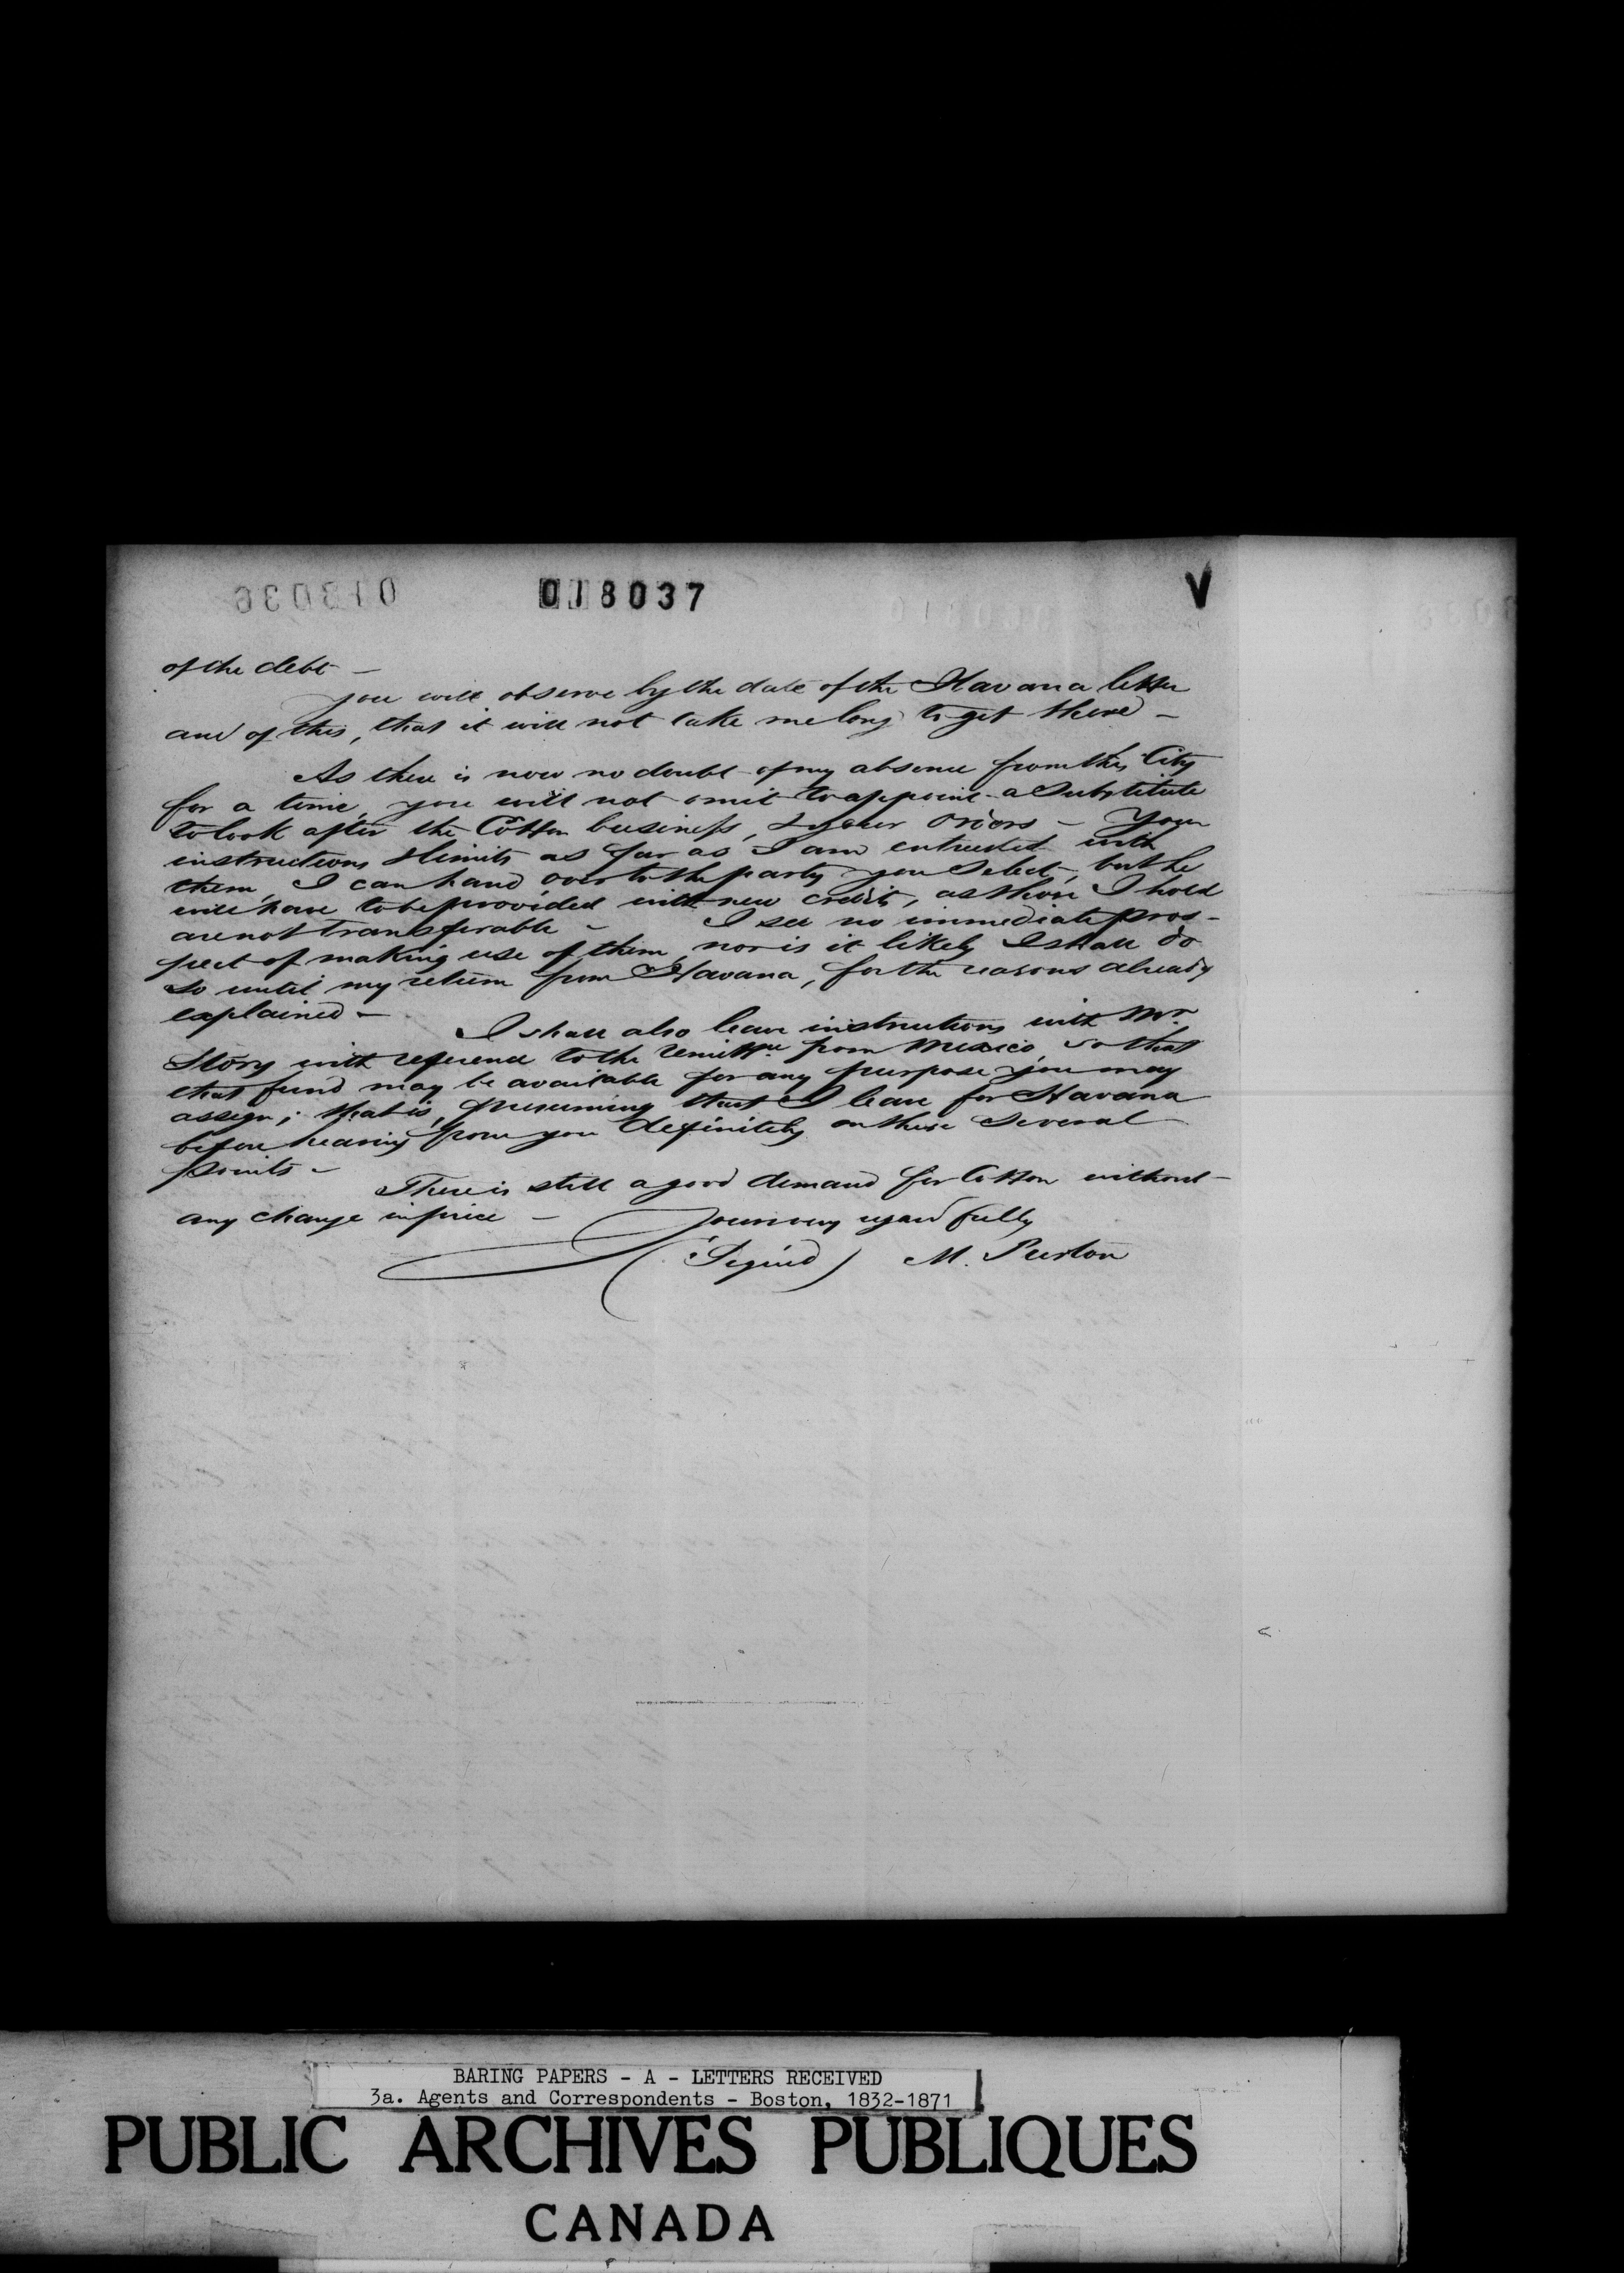 018036
018037
V
of the debt —
you will observe by the date of the Havana letter
and of this, that it will not take me long to get there —
As there is now no doubt of my absence from this City
for a time, you will not omit to appoint a Substitute
to look after the Cotton business, & other Orders — Your
instructions & limits as far as I am entrusted with
them, I can hand over to the party you Select, but he
will have to be provided with new credits, as those I hold
are not transferable — I see no immediate pros-
pect of making use of them, nor is it likely I shall do
so until my return from Havana, for the reasons already
explained —
I shall also leave instructions with Mr.
Story with reference to the remittce from Mexico, so that
that fund may be available for any purpose you may
assign; that is, presuming that I leave for Havana
before hearing from you definitely on these Several
points —
There is still a good demand for Cotton without
any change in price — Yours very regardfully
(Signed) M. Preston
BARING PAPERS - A - LETTERS RECEIVED
3a. Agents and Correspondents - Boston, 1832-1871
PUBLIC ARCHIVES PUBLIQUES
CANADA